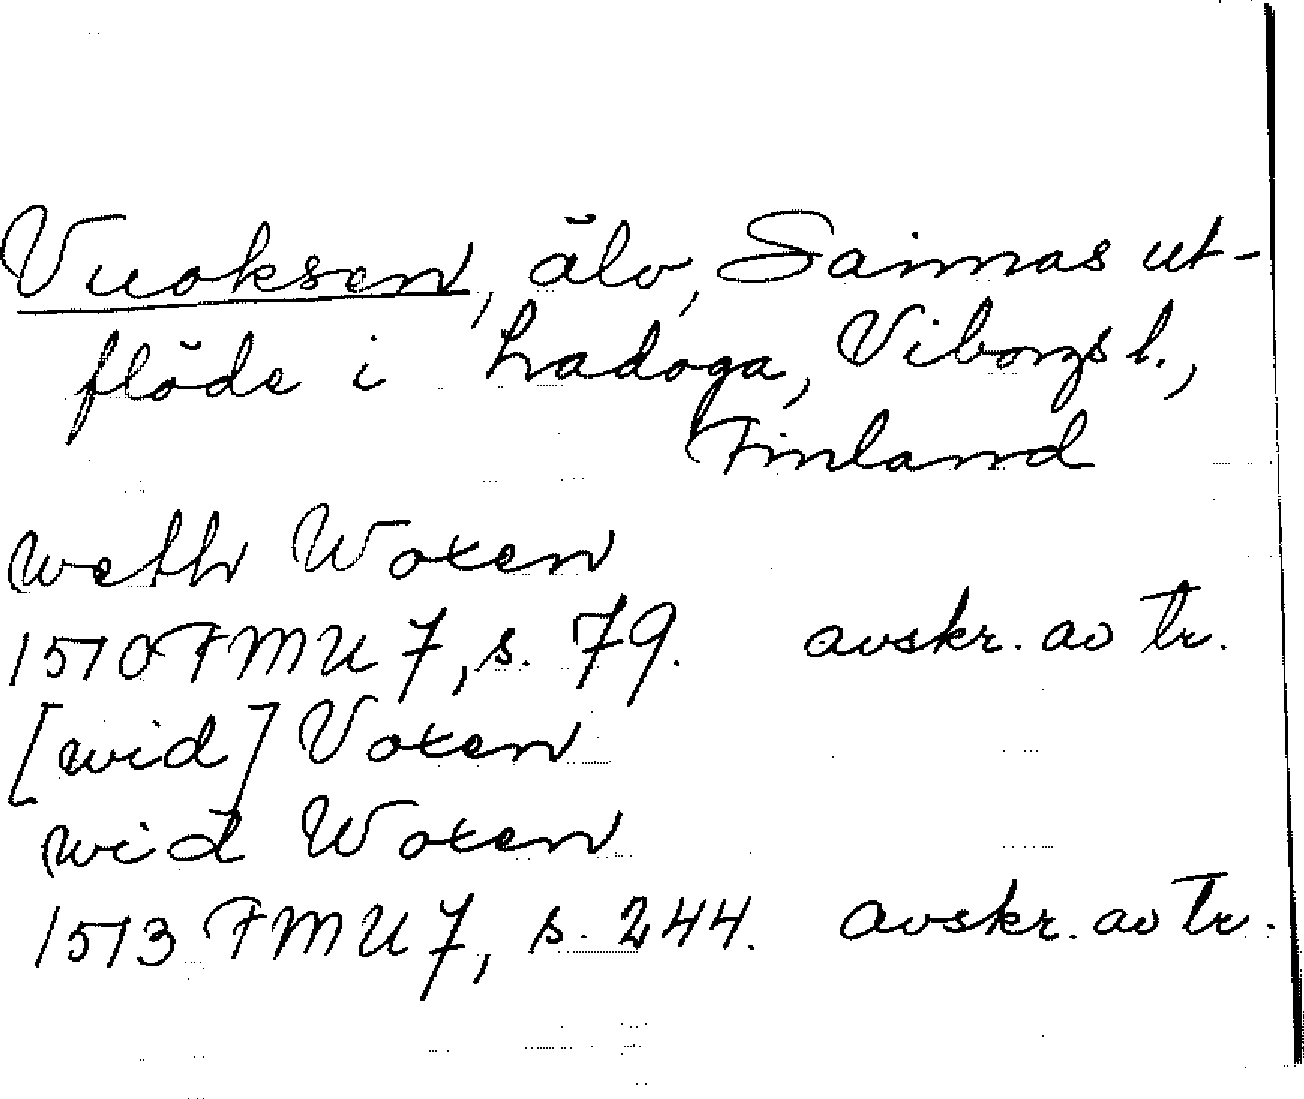 Vuoksen, älv, Saimas ut-
flöde i Ladoga, Viborgs l.,
Finland
weth Woxen
1510 FMU 7, s. 79. avskr. av tr.
[wid] Voxen
wid Woxen
1513 FMU 7, s. 244. avskr. av tr.